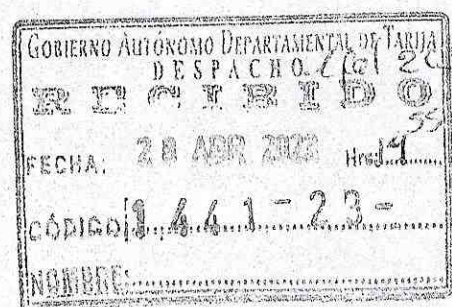 GOBIERNO AUTÓNOMO DEPARTAMENTAL DE TARIJA
DESPACHO
RECIBIDO
FECHA: 28 ABR 2023 Hrs.
CÓDIGO 1.441-23-
NOMBRE: